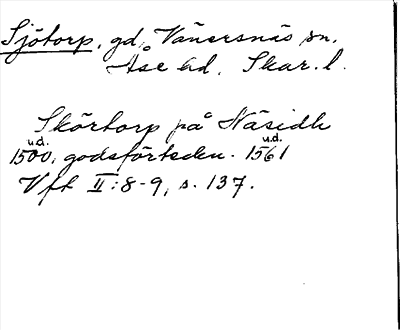 Sjötorp, gd, Vänersnäs sn.
Åse hd. Skar. l.
Skörtorp på Näsidh
u.d. u.d.
1500, godsförteckn. 1561
Vft II:8-9, s. 137.